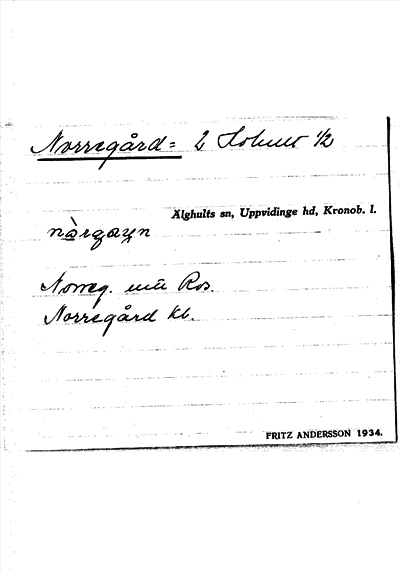 Norregård = 2 Hohult 1/2
Älghults sn, Uppvidinge hd, Kronob. l.
Norreg. Ros.
Norregård kb.
FRITZ ANDERSSON 1934.